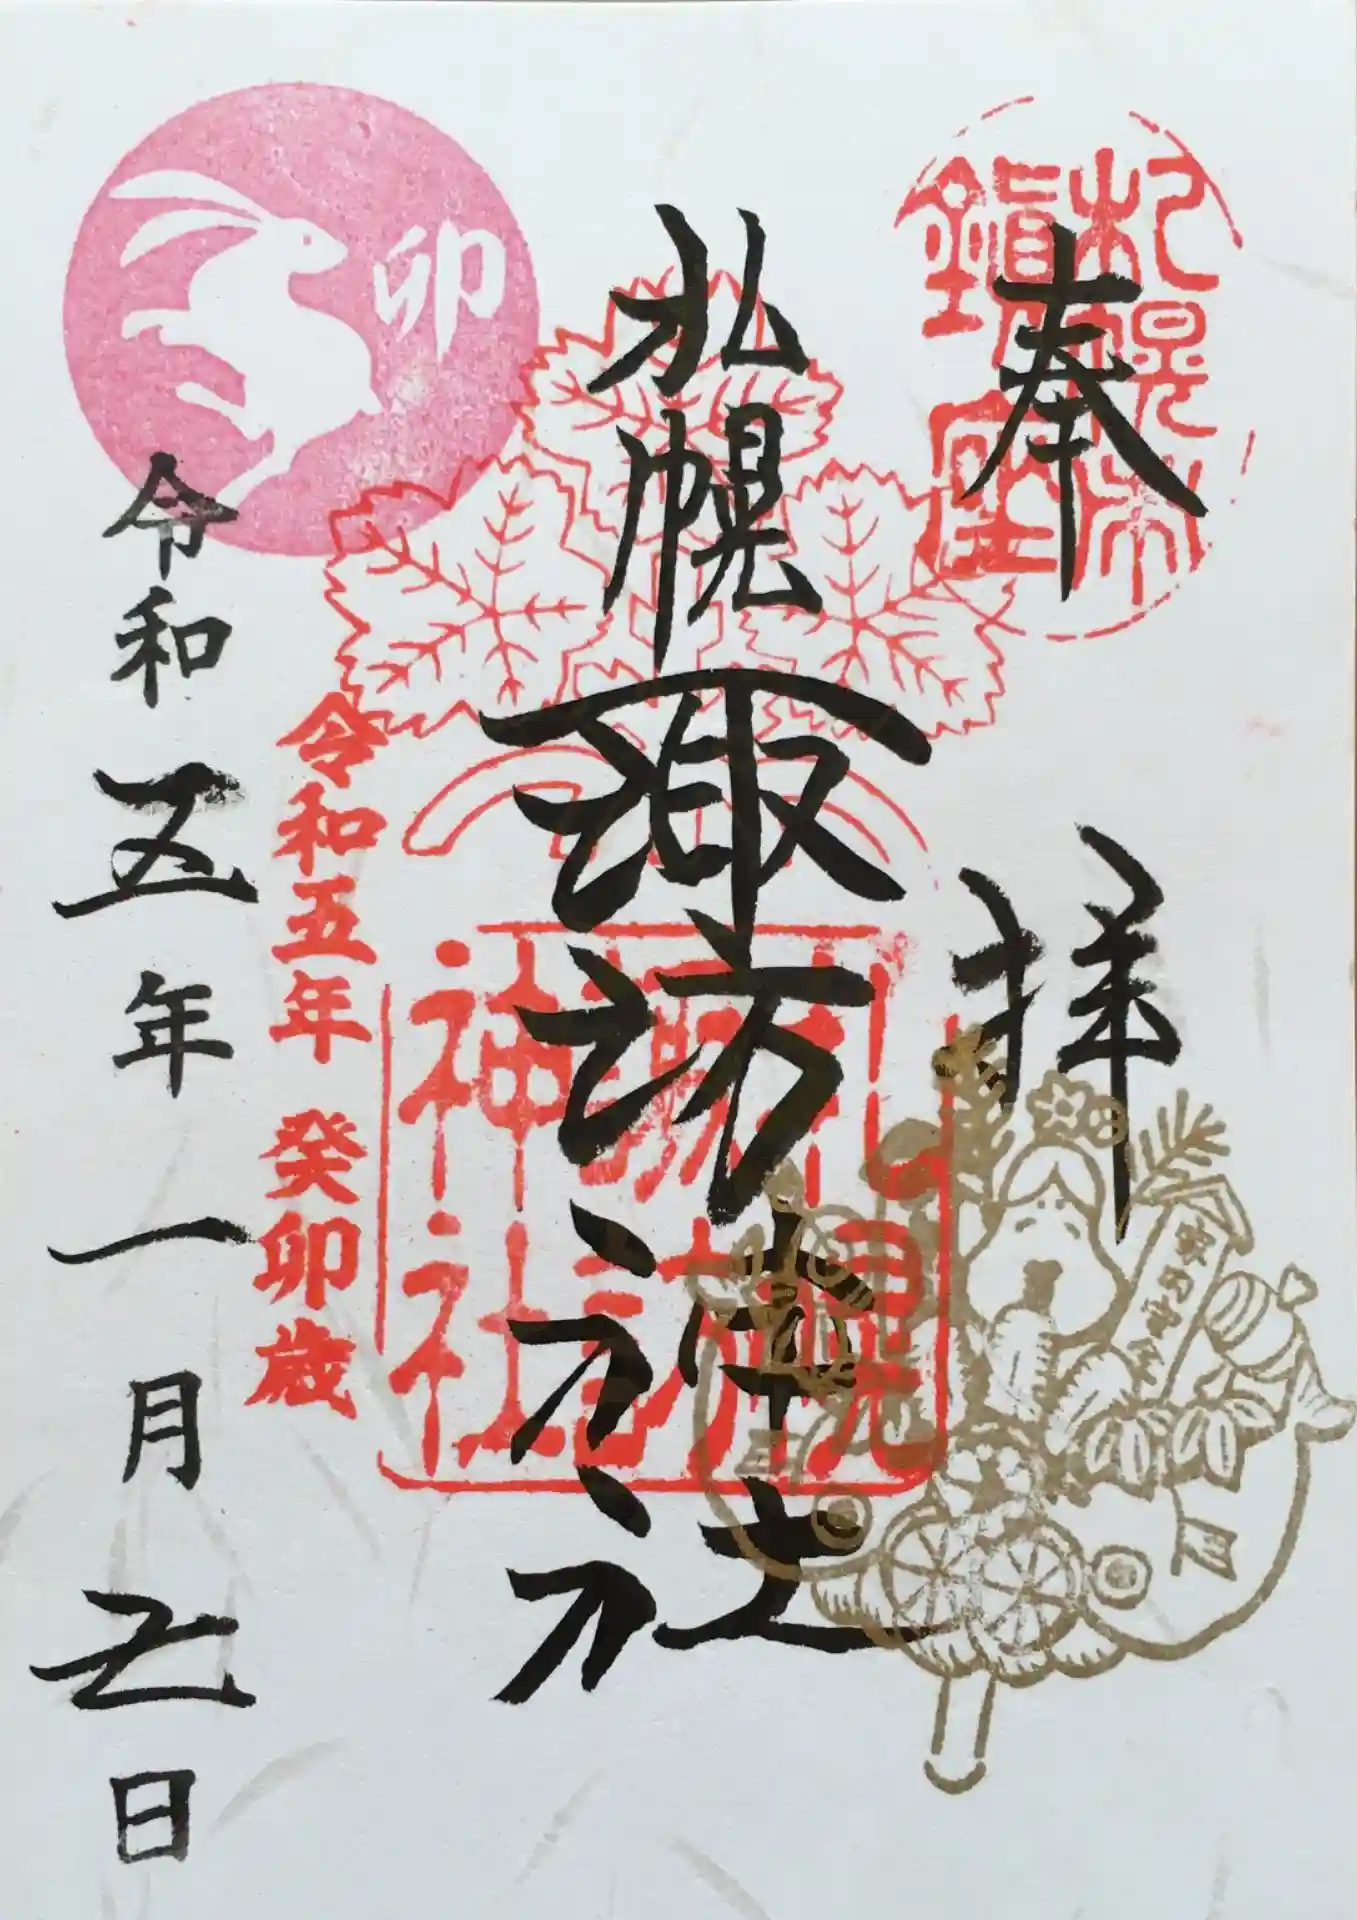 札幌市
鎮座
奉拝
札幌諏訪神社
札幌
諏訪
神社
家内安全
卯
令和五年 癸卯歳
令和五年一月 日